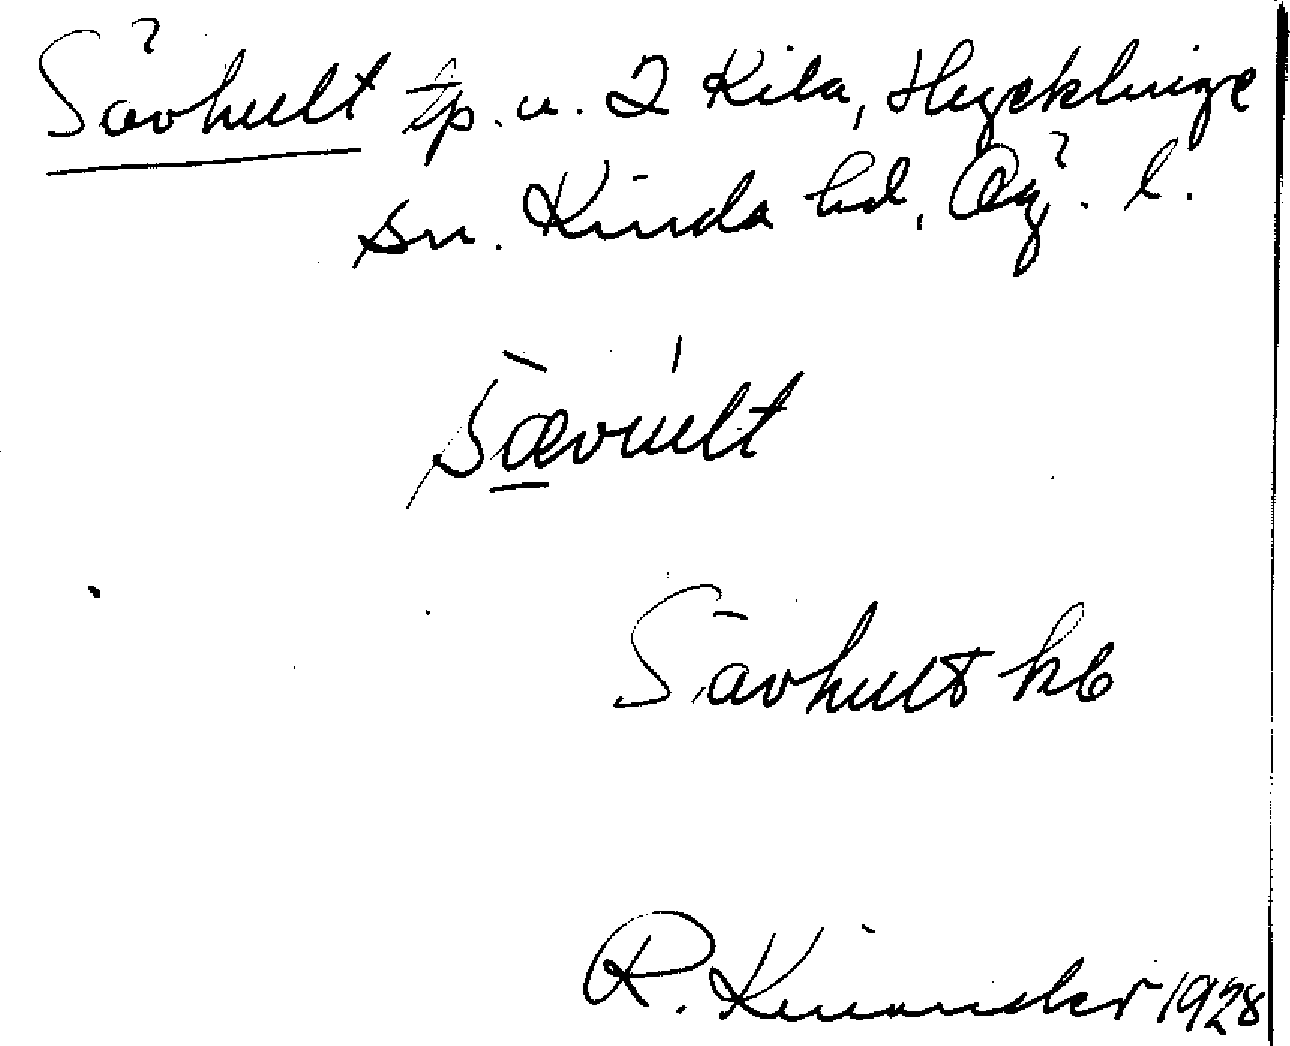 Sävhult tp. u. 2 Kila, Hycklinge
sn. Kinda hd, Ög. l.
Sævult
Sävhult kb
R. Kinander 1928